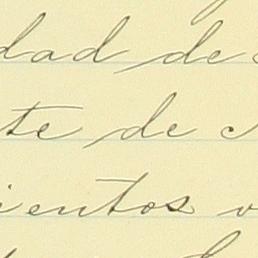 dad de
te de
ientos